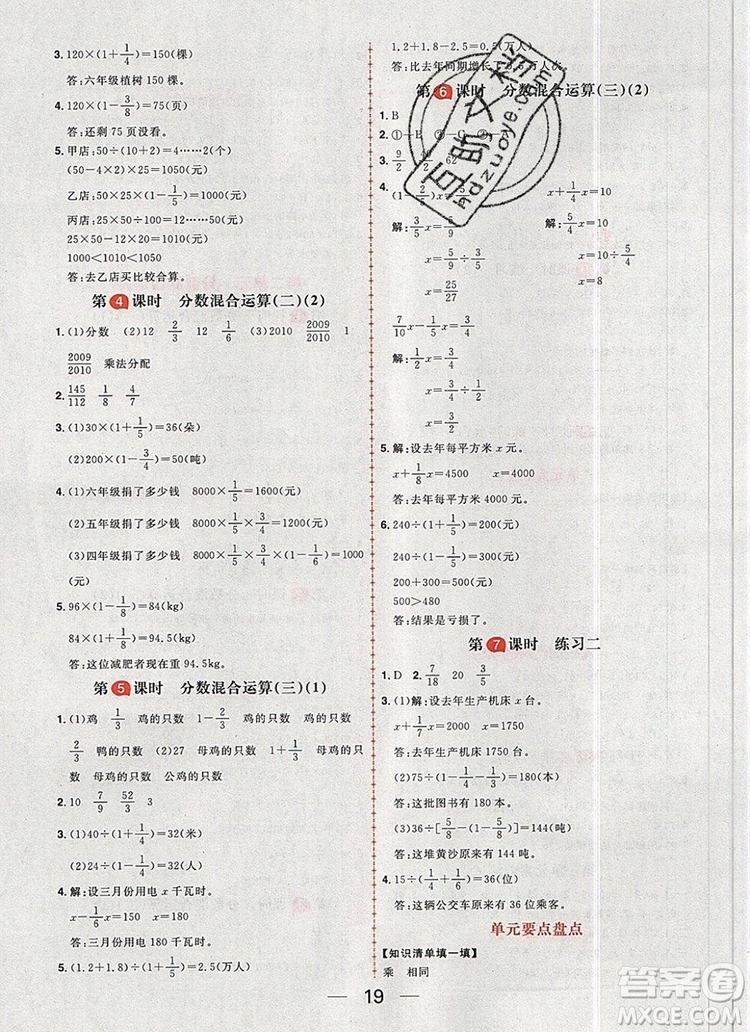 3. 120×(1+1/4)=150(棵)
答:六年级植树 150 棵。
4. 120×(1-3/8)=75(页)
答:还剩 75 页没看。
5. 甲店:50÷(10+2)=4……2(元)
(50-4)×25=1150(元)
乙店:50×25×(1-1/5)=1000(元)
丙店:50×25=1250(元)
1000<1090
答:去乙店买比较合算。
第4课时 分数混合运算(二)(2)
1. (1)分数 (2)12 2/3 12 1/6 (3)2010 2009/2010 1
2009/2010 乘法分配
2. 145/112 1/8 4/7
3. (1)30×(1+1/5)=36(朵)
(2)200×(1-3/4)=50(吨)
4. (1)六年级捐了多少钱 8000×1/5=1600(元)
(2)五年级捐了多少钱 8000×1/5×3/4=1200(元)
(3)四年级捐了多少钱 8000×1/5×3/4×(1-1/6)=1000
(元)
5. 96×(1-1/8)=84(kg)
84×(1+1/8)=94.5(kg)
答:这位减肥者现在重 94.5kg。
第5课时 分数混合运算(三)(1)
1. (1)鸡 1/3 鸡的只数 1-2/3 鸭的只数 鸡的只数
2/3 鸭的只数 (2)27 母鸡的只数 1+2/3 公鸡的只数
母鸡的只数 公鸡的只数
2. 10 7/9 52/3 3
3. (1)40÷(1+1/4)=32(米)
(2)24÷(1-1/4)=32(人)
4. 解:设三月份用电 x 千瓦时。
x-1/6x=150 x=180
答:三月份用电 180 千瓦时。
5. (1.2+1.8)÷(1+1/5)=2.5(万人)
1.2+1.8-2.5=0.5(万人)
答:比去年同期增长了0.5万人次。
第6课时 分数混合运算(三)(2)
1. B
2. ①—B ②—A ③—C
3. 9/2 40/9 62
4. x+1/4x=10
解: 解:5/4x=10
x=10÷5/4
x= x=8
7/10x-1/5x=3/4
解:1/2x=3/4
x=3/4÷1/2
x=3/2
5. 解:设去年每平方米 x 元。
x+1/8x=4500 x=4000
答:去年每平方米 4000 元。
6. 240÷(1+1/5)=200(元)
240÷(1-1/5)=300(元)
200+300=500(元)
500>480
答:结果是亏损了。
第7课时 练习二
1. D 2. 7/18 20 3/5
3. (1)解:设去年生产机床 x 台。
x+1/7x=2000 x=1750
答:去年生产机床 1750 台。
(2)75÷(1-1/4-1/3)=180(本)
答:这批图书有 180 本。
(3)36÷[5/8-(1-5/8)]=144(吨)
答:这堆黄沙原来有 144 吨。
4. 15÷(1-7/12)=36(位)
答:这辆公交车原来有 36 位乘客。
单元要点盘点
【知识清单填一填】
乘 相同
19
答案圈
MXQE.COM